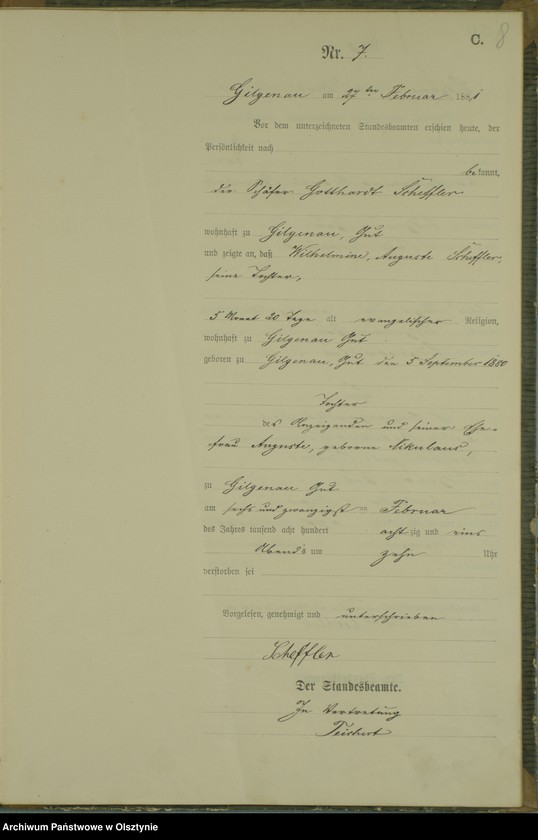 C. 8
Nr. 7.
Gilgenau am 27ten Februar 1881
Vor dem unterzeichneten Standesbeamten erschien heute, der
Persönlichkeit nach
bekannt,
der Schäfer Gotthardt Scheffler
wohnhaft zu Gilgenau, Gut
und zeigte an, daß Wilhelmine, Auguste Scheffler,
seine Tochter,
5 Monat 20 Tage alt evangelischer Religion,
wohnhaft zu Gilgenau Gut
geboren zu Gilgenau, Gut den 5 September 1880
Tochter
des Anzeigenden und seiner Ehe-
frau Auguste, geborne Nikulaus,
zu Gilgenau Gut
am sechs und zwanzigst en Februar
des Jahres tausend acht hundert achtzig und eins
Abends um zehn Uhr
verstorben sei
Vorgelesen, genehmigt und unterschrieben
Scheffler
Der Standesbeamte.
In Vertretung
Teichert
Archiwum Państwowe w Olsztynie